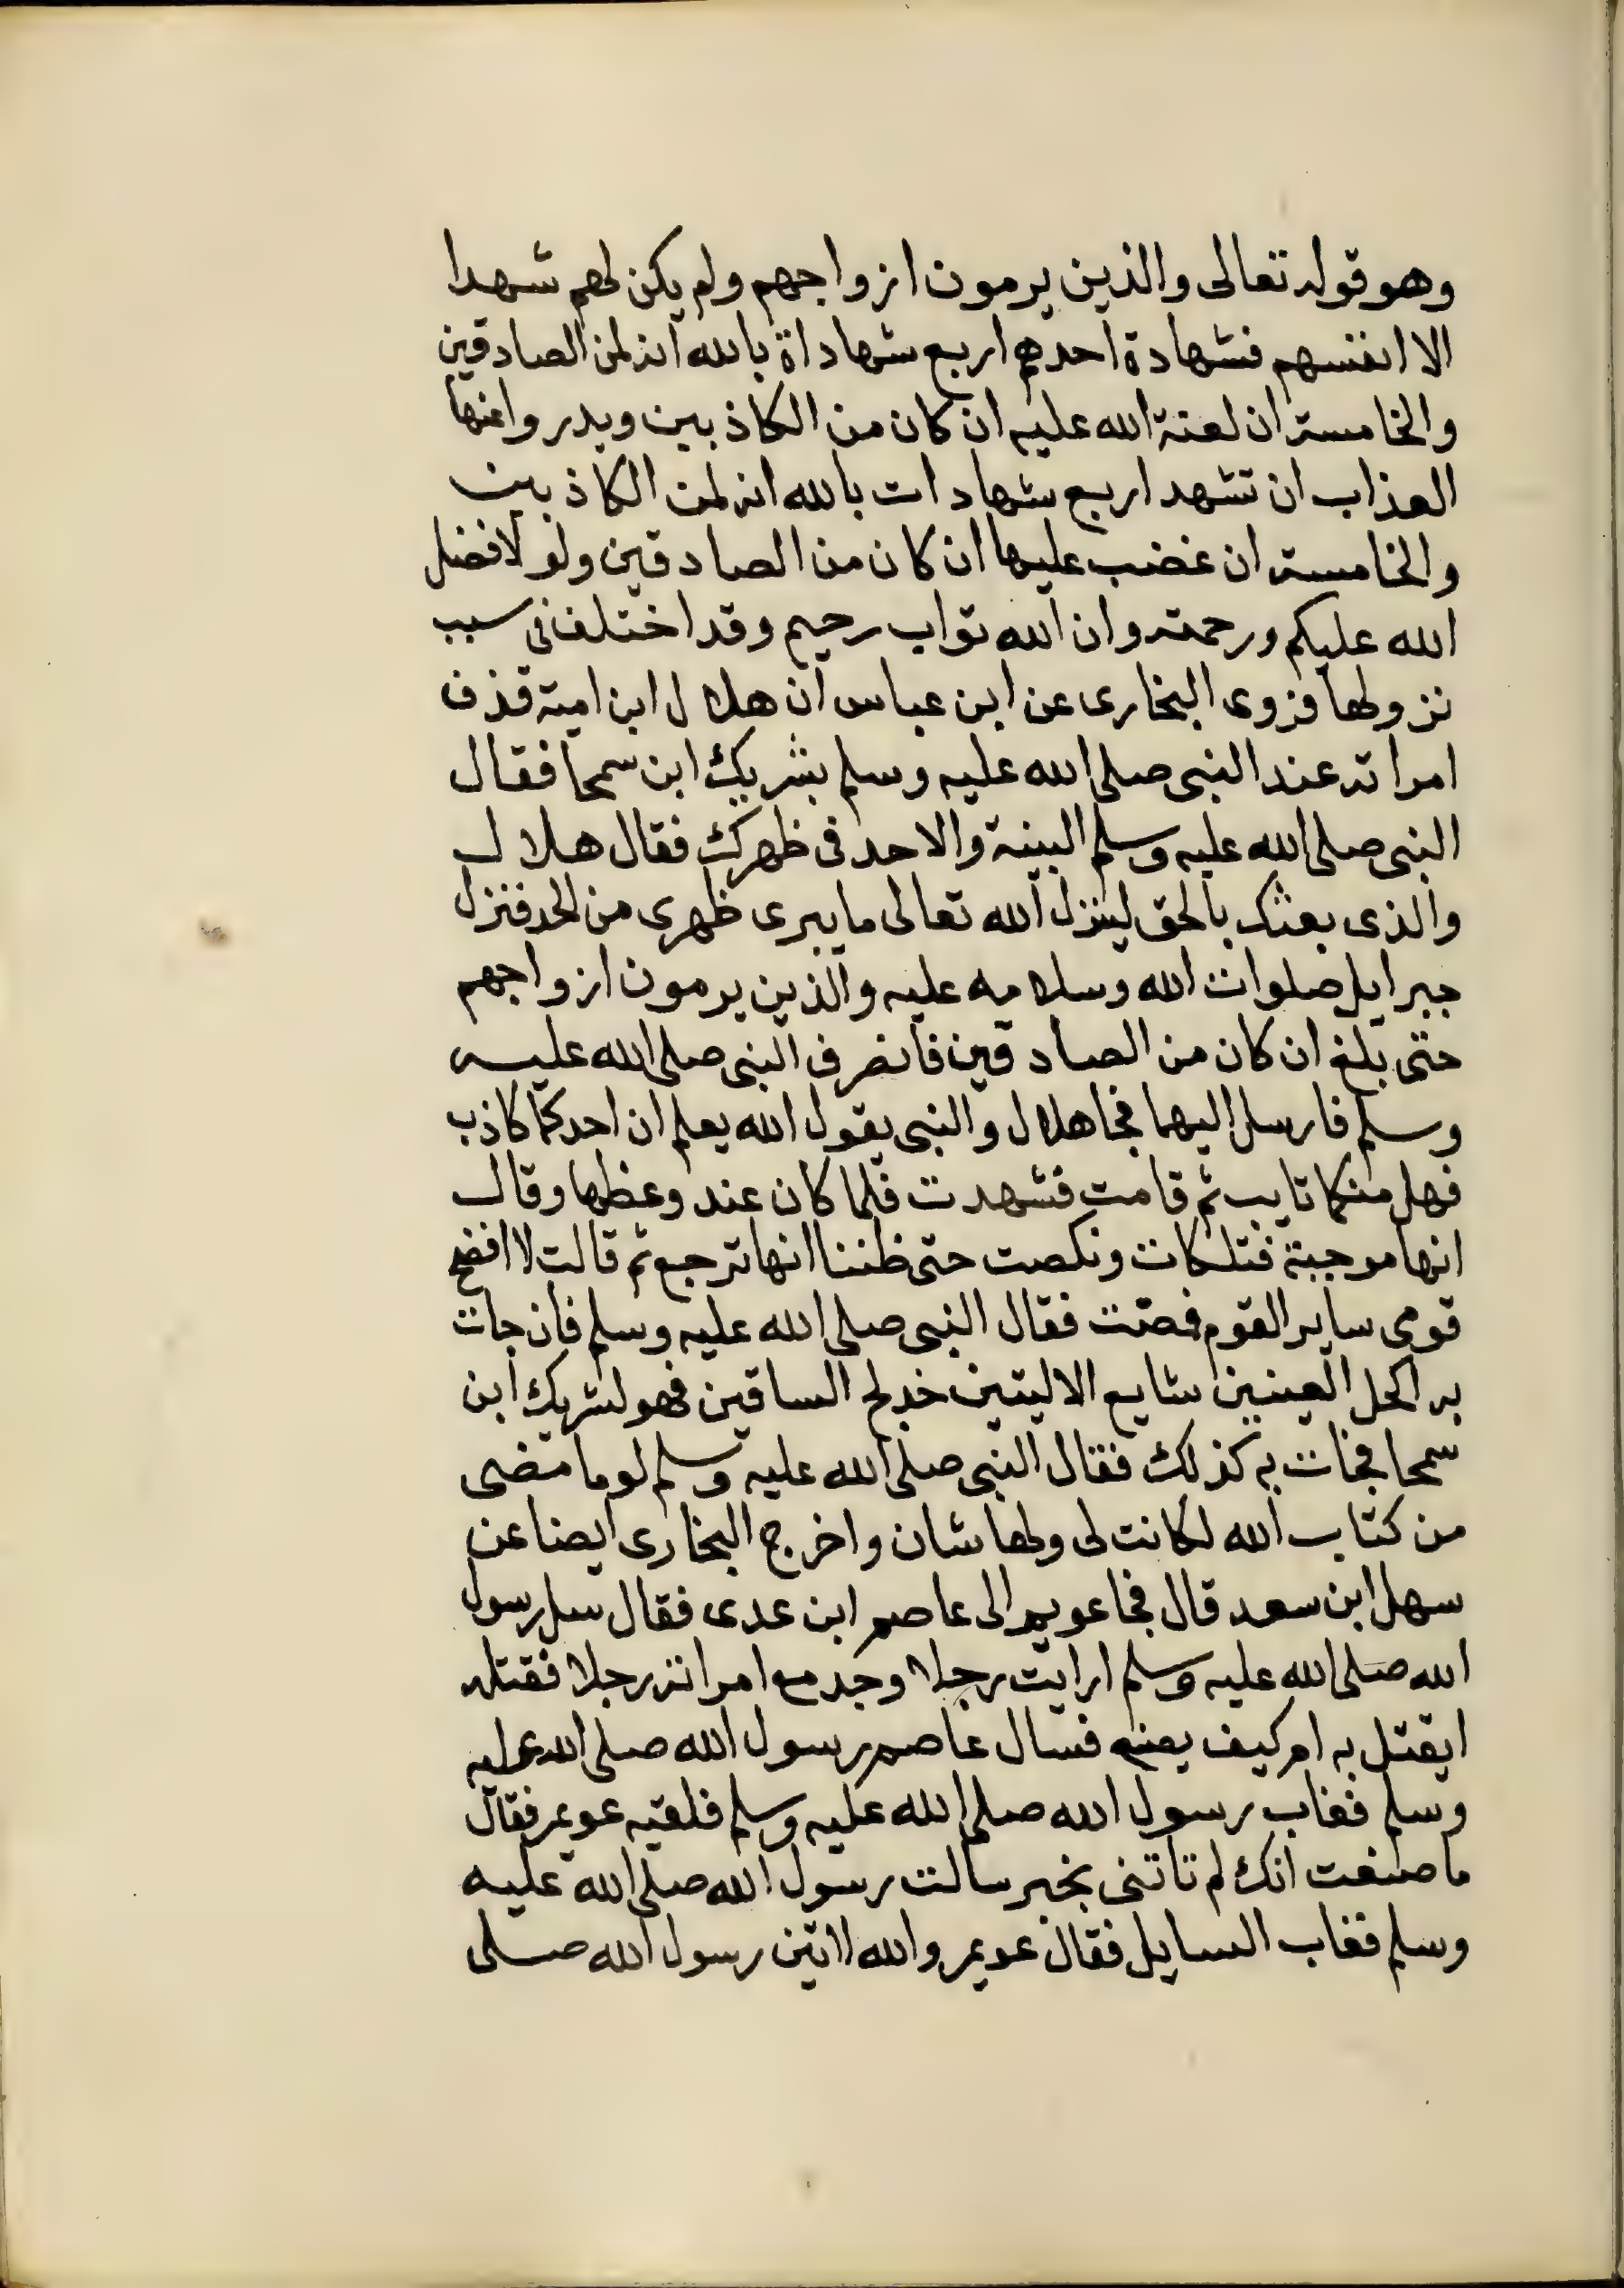 وهو قوله تعالى والذين يرمون ازواجهم ولم يكن لهم شهدا
الا انفسهم فشهادة احدهم اربع شهاداة بالله انه لمن الصادقين
والخامسة ان لعنة الله عليه ان كان من الكاذبين ويدروا عنها
العذاب ان تشهد اربع شهادات بالله انه لمن الكاذبين
والخامسة ان غضب عليها ان كان من الصادقين ولولا فضل
الله عليكم ورحمته وان الله تواب رحيم وقد اختلف فى سبب
نزولها فروى البخارى عن ابن عباس ان هلال ابن امية قذف
امراته عند النبى صلى الله عليه وسلم بشريك ابن سمحا فقال
النبى صلى الله عليه وسلم البينة والا حد فى ظهرك فقال هلال
والذى بعثك بالحق لينزل الله تعالى ما يبرى ظهرى من الحد فنزل
جبرايل صلوات الله وسلامه عليه والذين يرمون ازواجهم
حتى بلغ ان كان من الصادقين فانصرف النبى صلى الله عليه
وسلم فارسل اليهما فجا هلال والنبى يقول الله يعلم ان احدكما كاذب
فهل منكما تايب ثم قامت فشهدت فلما كان عند وعظها وقال
انها موجبة فتلكات ونكصت حتى ظننا انها ترجع ثم قالت لا افضح
قومى ساير القوم فمضت فقال النبى صلى الله عليه وسلم فان جات
به اكحل العينين شايع الاليتين خدلج الساقين فهو لشريك ابن
سمحا فجات به كذلك فقال النبى صلى الله عليه وسلم لو ما مضى
من كتاب الله لكانت لى ولها شان واخرج البخارى ايضا عن
سهل ابن سعد قال فجا عويمر الى عاصم ابن عدى فقال سل رسول
الله صلى الله عليه وسلم ارايت رجلا وجد مع امراته رجلا فقتله
ايقتل به ام كيف يصنع فسال عاصم رسول الله صلى الله عليه
وسلم فغاب رسول الله صلى الله عليه وسلم فلقيه عويمر فقال
ما صنعت انك لم تاتنى بخبر سالت رسول الله صلى الله عليه
وسلم فغاب السايل فقال عويمر والله لاتين رسول الله صلى